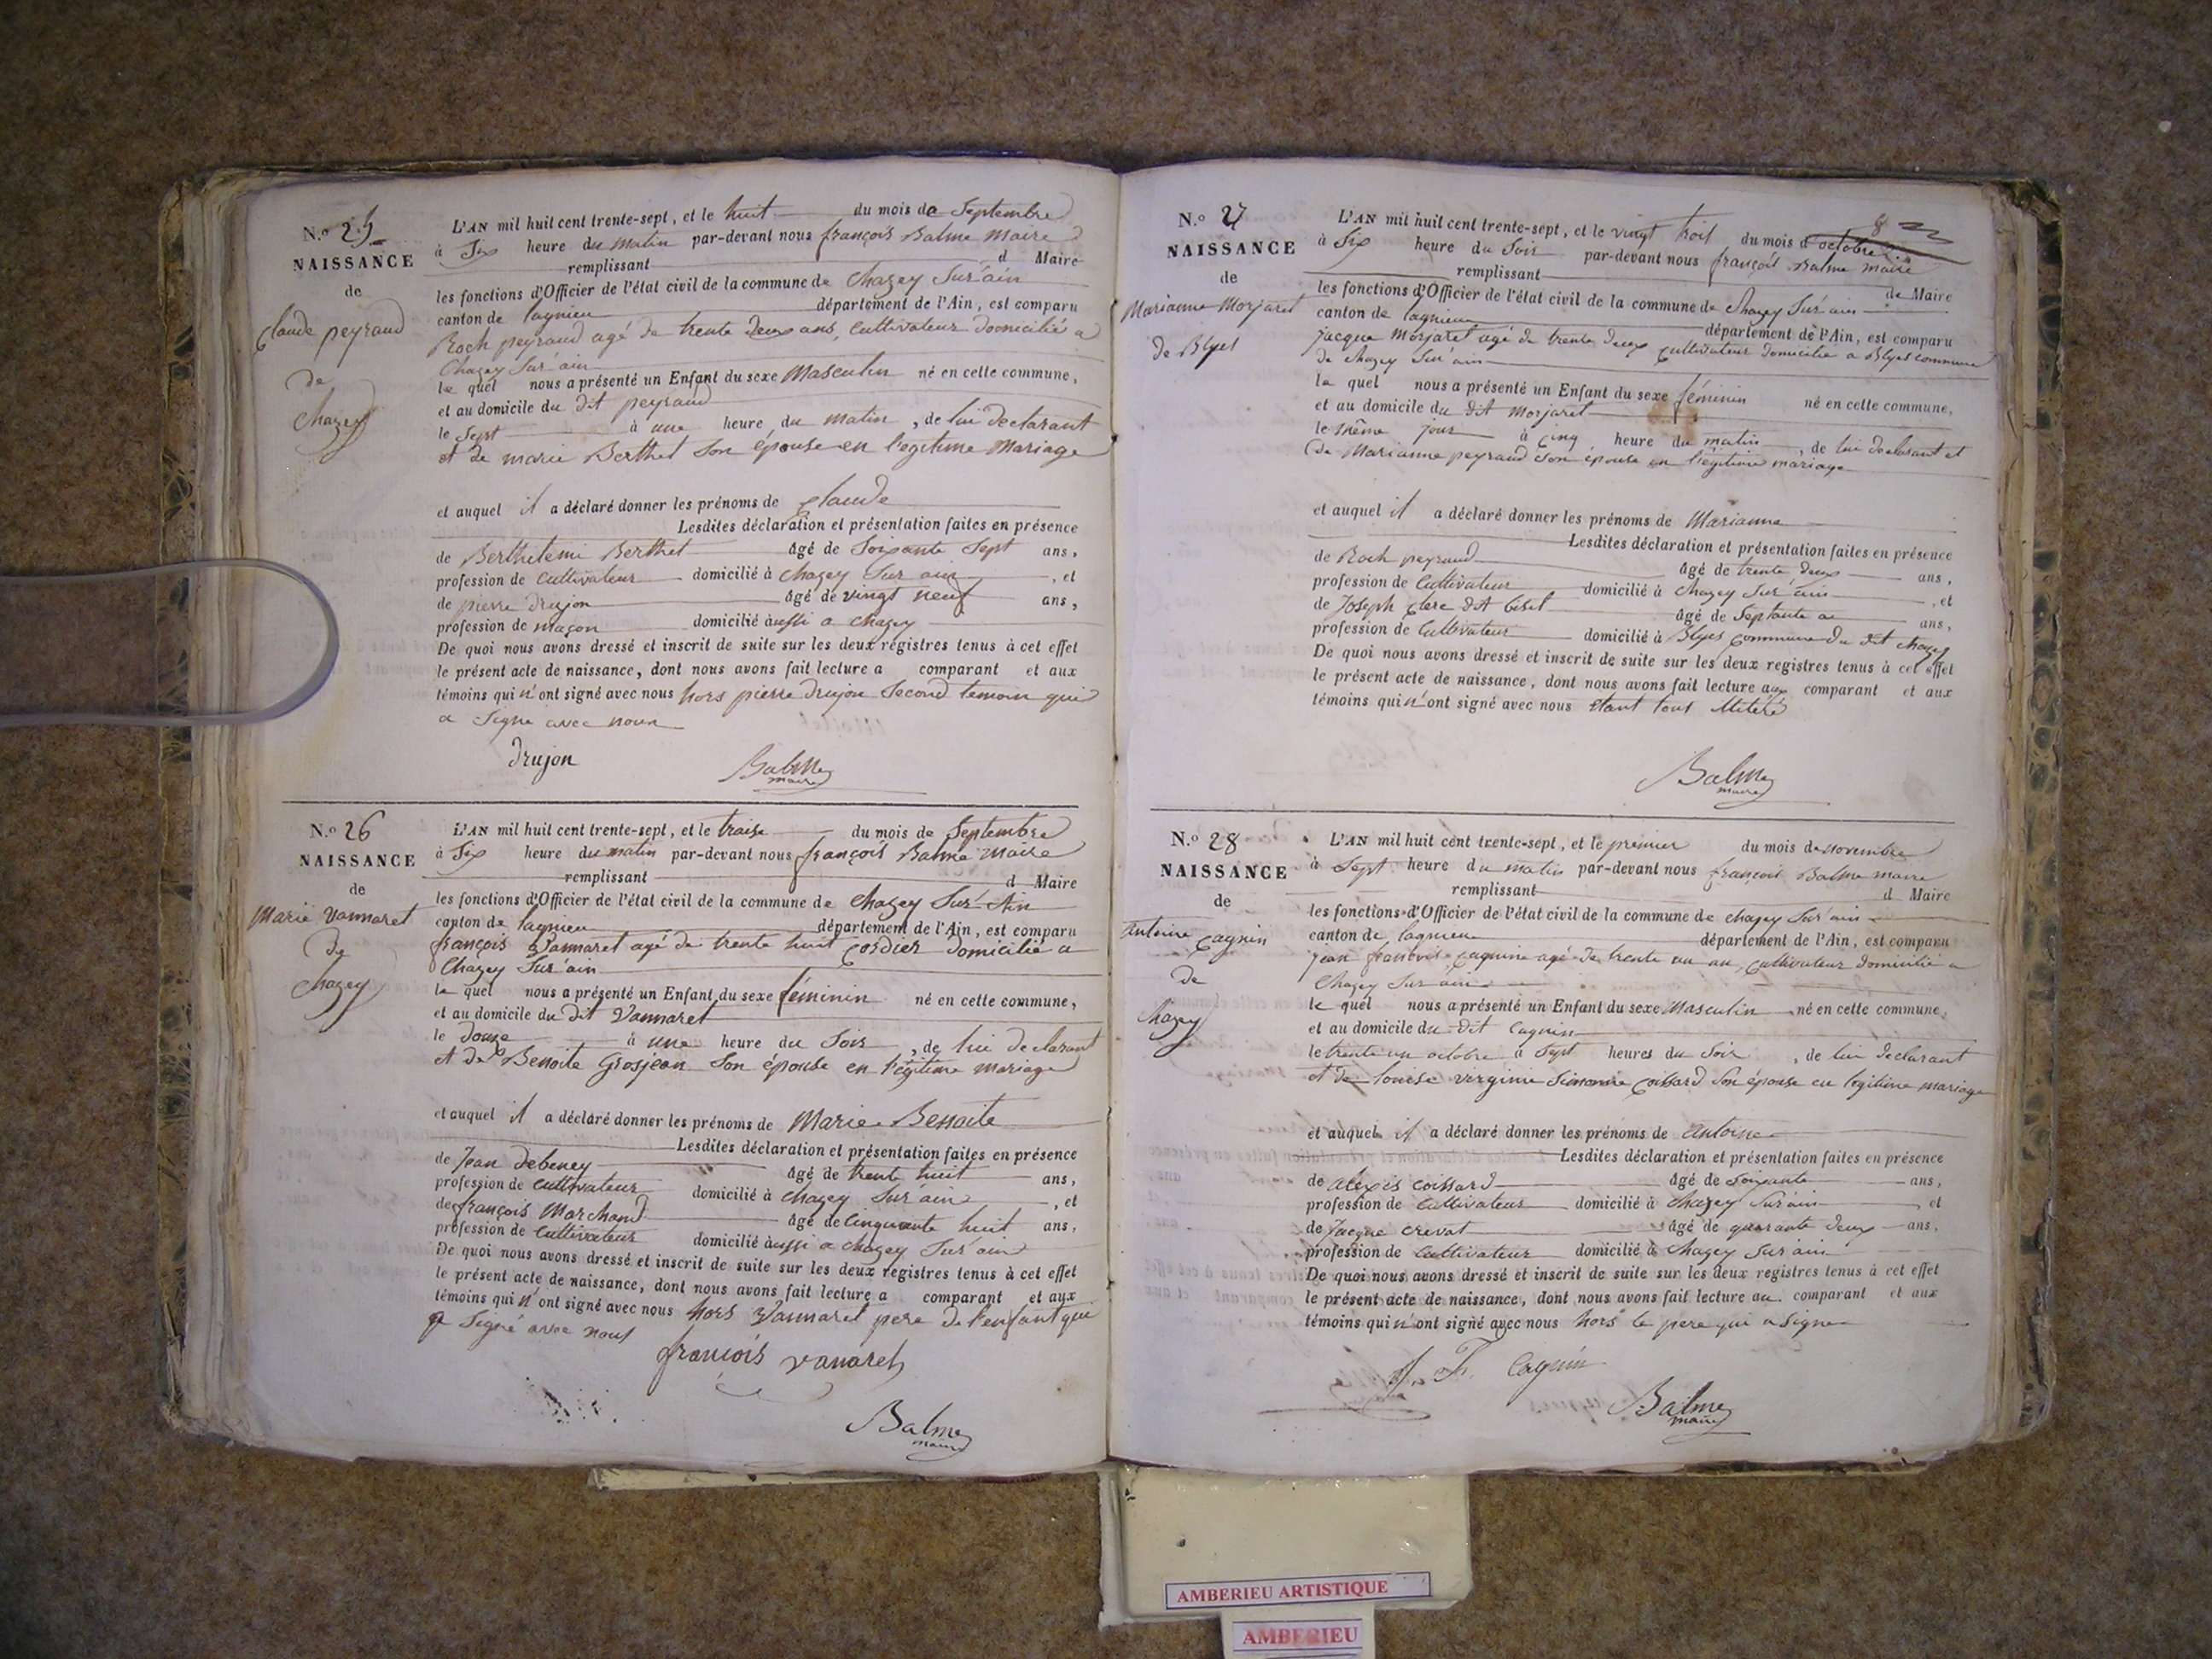 N.o 25
NAISSANCE
de
Claude peyraud
de
Chazey
L'AN mil huit cent trente-sept, et le huit du mois de Septembre
à Six heure du matin par-devant nous françois Balme Maire
remplissant d Maire
les fonctions d'Officier de l'état civil de la commune de Chazey Sur ain
canton de lagnieu département de l'Ain, est comparu
Roch peyraud agé de trente deux ans, Cultivateur domicilié a
Chazey Sur ain
le quel nous a présenté un Enfant du sexe Masculin né en cette commune,
et au domicile du dit peyraud
le Sept à une heure du matin, de lui declarant
et de marie Berthet Son épouse en légitime Mariage
et auquel il a déclaré donner les prénoms de Claude
Lesdites déclaration et présentation faites en présence
de Berthelemi Berthet âgé de Soixante Sept ans,
profession de Cultivateur domicilié à Chazey Sur ain, et
de pierre Drujon âgé de vingt neuf ans,
profession de maçon domicilié aussi a Chazey
De quoi nous avons dressé et inscrit de suite sur les deux registres tenus à cet effet
le présent acte de naissance, dont nous avons fait lecture a comparant et aux
témoins qui n'ont signé avec nous hors pierre Drujon Second temoin qui
a Signe avec nous
Drujon
Balme
maire
N.o 26
NAISSANCE
de
Marie Vannaret
de
Chazey
L'AN mil huit cent trente-sept, et le traise du mois de Septembre
à Six heure du matin par-devant nous françois Balme Maire
remplissant d Maire
les fonctions d'Officier de l'état civil de la commune de Chazey Sur Ain
canton de lagnieu département de l'Ain, est comparu
françois Vannaret agé de trente huit Cordier domicilié a
Chazey Sur ain
le quel nous a présenté un Enfant du sexe féminin né en cette commune,
et au domicile du dit Vannaret
le douze à une heure du Soir, de lui declarant
et de Benoite Grosjean Son épouse en légitime mariage
et auquel il a déclaré donner les prénoms de Marie Benoite
Lesdites déclaration et présentation faites en présence
de Jean Debeney âgé de trente huit ans,
profession de Cultivateur domicilié à Chazey Sur ain, et
de françois Marchand âgé de Cinquante huit ans,
profession de Cultivateur domicilié aussi a Chazey Sur ain
De quoi nous avons dressé et inscrit de suite sur les deux registres tenus à cet effet
le présent acte de naissance, dont nous avons fait lecture a comparant et aux
témoins qui n'ont signé avec nous hors Vannaret pere de l'enfant qui
a Signé avec nous
françois vanaret
Balme
maire
N.o 27
NAISSANCE
de
Marianne Morjaret
de Blyes
L'AN mil huit cent trente-sept, et le vingt trois du mois d'octobre
à Six heure du Soir par-devant nous françois Balme maire
remplissant de Maire
les fonctions d'Officier de l'état civil de la commune de Chazey Sur ain
canton de lagnieu département de l'Ain, est comparu
jacque Morjaret agé de trente deux Cultivateur domicilié a Blyes commune
de Chazey Sur ain
le quel nous a présenté un Enfant du sexe féminin né en cette commune,
et au domicile du dit morjaret
le même jour à Cinq heure du matin, de lui declarant et
de Marianne peyraud Son épouse en légitime mariage
et auquel il a déclaré donner les prénoms de Marianne
Lesdites déclaration et présentation faites en présence
de Roch peyraud âgé de trente deux ans,
profession de Cultivateur domicilié à Chazey Sur ain, et
de Joseph Clerc dit âgé de Septante ans,
profession de Cultivateur domicilié à Blyes Commune du dit Chazey
De quoi nous avons dressé et inscrit de suite sur les deux registres tenus à cet effet
le présent acte de naissance, dont nous avons fait lecture aux comparant et aux
témoins qui n'ont signé avec nous étant tous
Balme
maire
N.o 28
NAISSANCE
de
Antoine Cagnin
de
Chazey
L'AN mil huit cent trente-sept, et le premier du mois de novembre
à Sept heure du matin par-devant nous françois Balme maire
remplissant d Maire
les fonctions d'Officier de l'état civil de la commune de Chazey Sur ain
canton de lagnieu département de l'Ain, est comparu
jean francois Cagnin agé de trente un an, Cultivateur domicilié a
Chazey Sur ain
le quel nous a présenté un Enfant du sexe Masculin né en cette commune,
et au domicile du dit Cagnin
le trente un octobre à Sept heures du Soir, de lui declarant
et de louise virginie Simonne Coissard Son épouse en légitime mariage
et auquel il a déclaré donner les prénoms de antoine
Lesdites déclaration et présentation faites en présence
de alexis Coissard âgé de Soixante ans,
profession de Cultivateur domicilié à Chazey Sur ain, et
de Jacque Crevat âgé de quarante deux ans,
profession de Cultivateur domicilié à Chazey Sur ain
De quoi nous avons dressé et inscrit de suite sur les deux registres tenus à cet effet
le présent acte de naissance, dont nous avons fait lecture au comparant et aux
témoins qui n'ont signé avec nous hors le pere qui a Signe
Cagnin
Balme
maire
AMBERIEU ARTISTIQUE
AMBERIEU